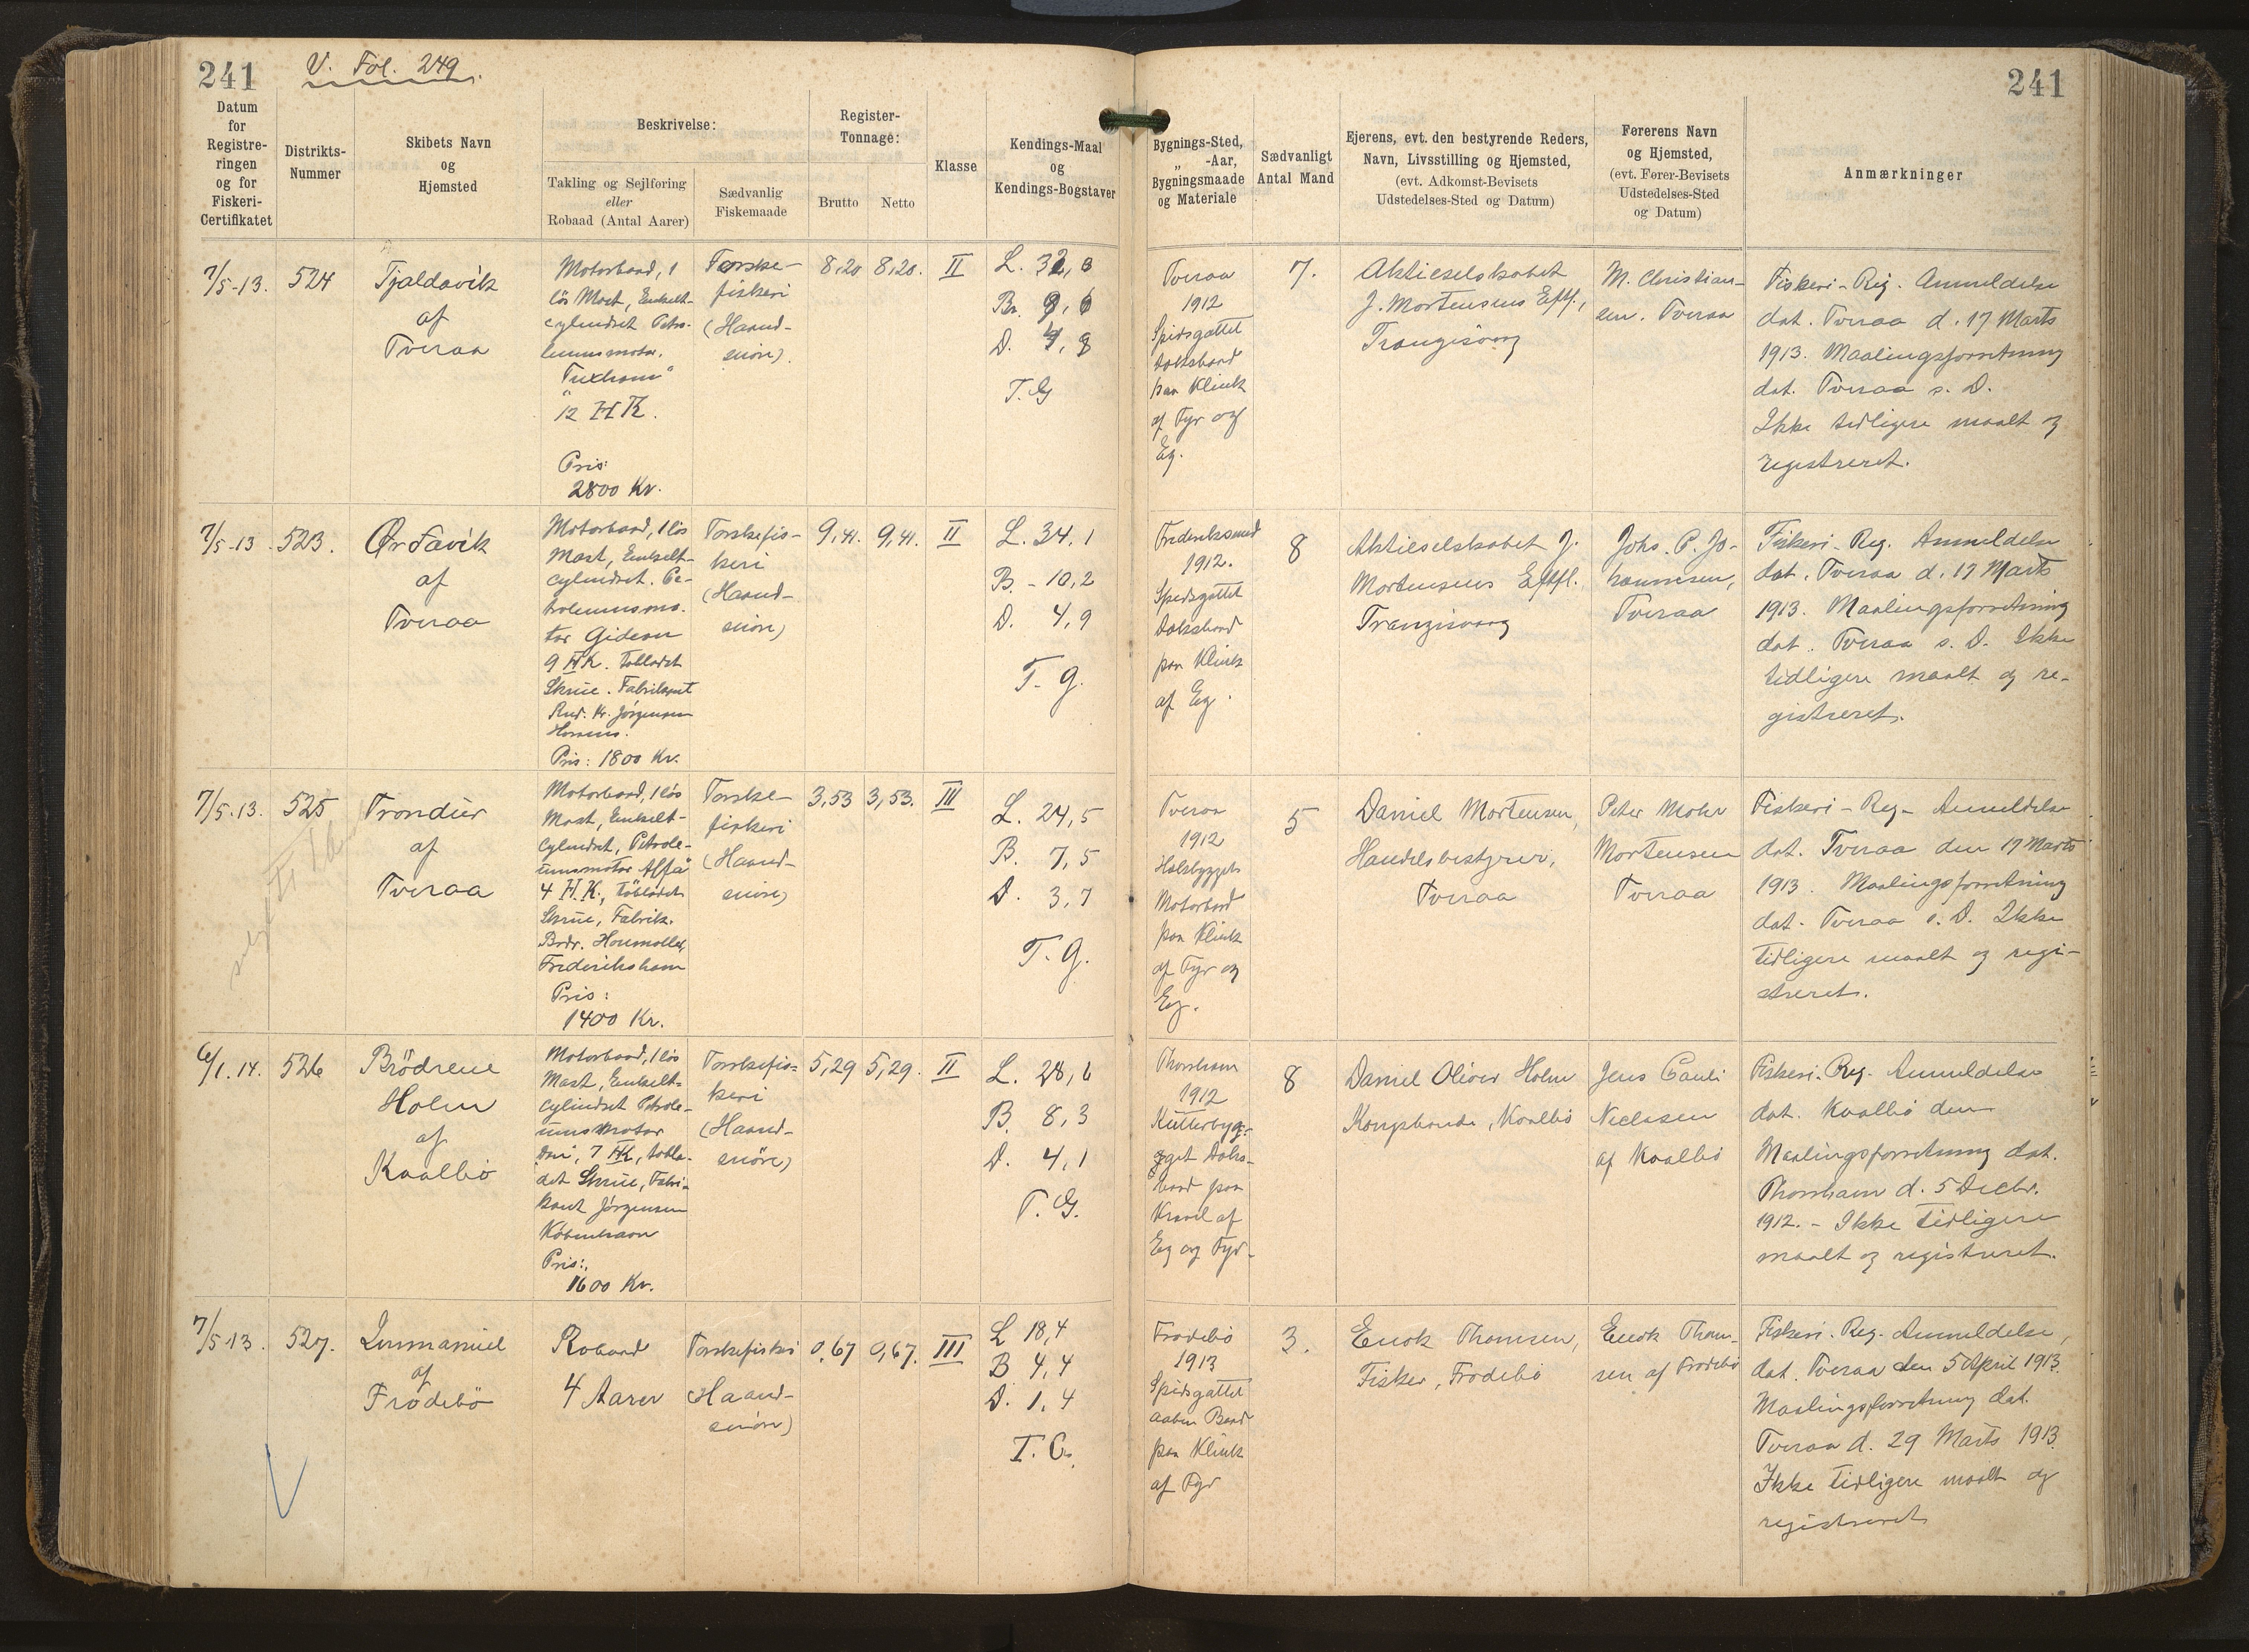 241
V. Fol. 249.
241
Datum
for
Registre-
ringen
og for
Fiskeri-
Certifikatet
Distrikts-
Nummer
Skibets Navn
og
Hjemsted
Beskrivelse:
Takling og Sejlføring
eller
Robaad (Antal Aarer)
Sædvanlig
Fiskemaade
Register-
Tonnage:
Brutto
Netto
Klasse
Kendings-Maal
og
Kendings-Bogstaver
Bygnings-Sted,
„ -Aar,
Bygningsmaade
og Materiale
Sædvanligt
Antal Mand
Ejerens, evt. den bestyrende Reders,
Navn, Livsstilling og Hjemsted,
(evt. Adkomst-Bevisets
Udstedelses-Sted og Datum)
Førerens Navn
og Hjemsted,
(evt. Fører-Bevisets
Udstedelses-Sted
og Datum)
Anmærkninger
7/5-13.
524
Tjaldavik
af
Tveraa
Motorbaad, 1
lös Mast, Enkelt-
cylindret Petro-
leumsmotor.
"Tuxham"
12 HK.
Pris:
2800 Kr.
Torske-
fiskeri
(Haand-
snöre).
8,20
8,20.
II
L. 32,3
Br. 9,6
D. 4,8
T.G
Tveraa
1912
Spidsgattet
Dæksbaad
paa Klink
af Fyr og
Eg.
7.
Aktieselskabet
J. Mortensens Eftf.,
Trangisvaag
M. Christian-
sen. Tveraa
Fiskeri-Reg. Anmeldelse
dat. Tveraa d. 17 Marts
1913. Maalingsforretning
dat. Tveraa s. D.
Ikke tidligere maalt og
registreret.
7/5-13.
523.
Ørdavik
af
Tveraa
Motorbaad, 1 lös
Mast, Enkelt-
cylindret. Pe-
troleumsmo-
tor Gideon
9 HK. Tobladet
Skrue. Fabrikant
Rud. Kr. Jørgensen
Horsens.
Pris: 1800 Kr.
Torskefis-
keri
(Haand-
snöre)
9,41.
9,41.
II
L. 34.1
B. - 10,2
D. 4,9
T. G.
Frederikssund
1912.
Spidsgattet
Dæksbaad
paa Klink
af Eg.
8
Aktieselskabet J.
Mortensens Eftfl.
Trangisvaag
Johs. P. Jo-
hannesen,
Tveraa
Fiskeri-Reg. Anmeldelse
dat. Tveraa d. 17 Marts
1913. Maalingsforretning
dat. Tveraa s. D. Ikke
tidligere maalt og re-
gistreret.
7/5.13.
525
Trondur
af
Tveraa
Motorbaad, 1 lös
Mast, Enkelt-
cylindret, Petrole-
umsmotor Alfa
4 H.K., töbladet
Skrue, Fabrik.
Brdr. Houmøller,
Frederikshavn
Pris:
1400 Kr.
Torske-
fiskeri
(Haand-
snöre)
3,53
3,53.
III
L. 24,5
B. 7,5
D. 3,7
T. G.
Tveraa
1912
Motorbaad
paa Klink
af Fyr og
Eg.
5
Daniel Mortensen,
Handelsbestyrer,
Tveraa
Peter Mohr
Mortensen
Tveraa
Fiskeri-Reg- Anmeldelse
dat. Tveraa den 17 Marts
1913. Maalingsforretning
dat. Tveraa s. D. Ikke
tidligere maalt og regi-
streret.
6/1.14.
526
Brödrene
Holm
af
Kvalbö
Motorbaad, 1 lös
Mast, Enkelt-
cylindret Petrole-
umsmotor
Dan, 7 HK, tobla-
det Skrue, Fabri-
kant Jørgensen
København
Pris:
1600 Kr.
Torskefis-
keri
(Haand-
snöre)
5,29
5,29.
II
L. 28,6
B. 8,3
D. 4,1
T. G.
Thorshavn
1912
Kutterbyg-
get Dæks-
baad paa
Kravel af
Eg og Fyr.
8
Daniel Oliver Holm
Kongsbonde, Kvalbö
Jens Pauli
Nielsen
af Kvalbö
Fiskeri-Reg. Anmeldelse
dat. Kvalbö den
Maalingsforretning dat.
Thorshavn d. 5 Decbr.
1912. - Ikke tidligere
maalt og registreret.
7/5-13.
527.
Immanuel
af
Frodebö
Robaad
4 Aarer
Torskefiskeri
(Haand-
snöre)
0,67
0,67.
III
L 18,4
B 4,4
D. 1,4
T. G.
Frodebö
1913
Spidsgattet
aaben Baad
paa Klink
af Fyr
3.
Enok Thomsen,
Fisker, Frodebö
Enok Thom-
sen af Frodebö
Fiskeri-Reg. Anmeldelse,
dat. Tveraa den 5 April 1913
Maalingsforretning dat.
Tveraa d. 29 Marts 1913.
Ikke tidligere maalt og
registreret